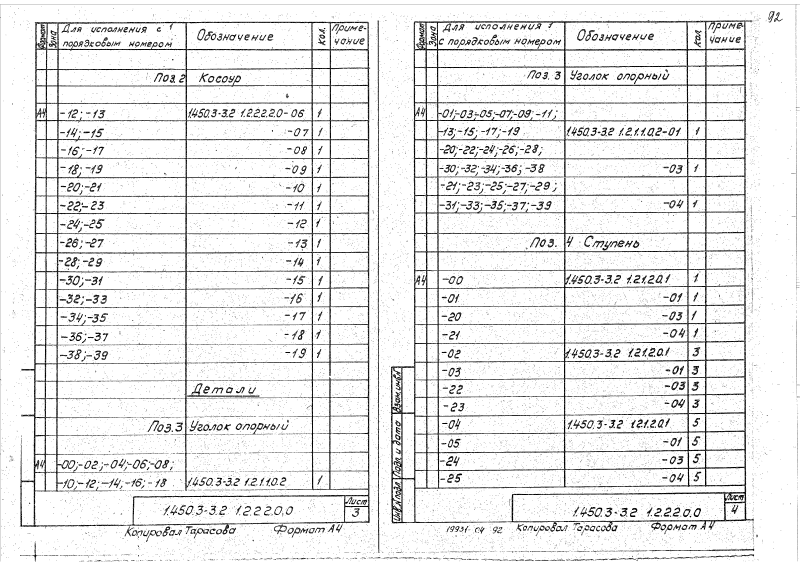 92
Формат
Зона
Для исполнения с 1 порядковым номером
Обозначение
Кол.
Примечание
Поз.2 Косоур
А4 -12;-13 1.450.3-3.2 1.2.2.2.0-06 1
-14;-15 -07 1
-16;-17 -08 1
-18;-19 -09 1
-20;-21 -10 1
-22;-23 -11 1
-24;-25 -12 1
-26;-27 -13 1
-28;-29 -14 1
-30;-31 -15 1
-32;-33 -16 1
-34;-35 -17 1
-36;-37 -18 1
-38;-39 -19 1
Детали
Поз.3 Уголок опорный
А4 -00;-02;-04;-06;-08;
-10;-12;-14;-16;-18 1.450.3-3.2 1.2.1.1.0.2 1
1.450.3-3.2 1.2.2.2.0.0
Лист
3
Копировал Тарасова Формат А4
Формат
Зона
Для исполнения 1 с порядковым номером
Обозначение
Кол
Примечание
Поз. 3 Уголок опорный
А4 -01;-03;-05;-07;-09;-11;
-13;-15;-17;-19 1.450.3-3.2 1.2.1.1.0.2-01 1
-20;-22;-24;-26;-28;
-30;-32;-34;-36;-38 -03 1
-21;-23;-25;-27;-29;
-31;-33;-35;-37;-39 -04 1
Поз. 4 Ступень
А4 -00 1.450.3-3.2 1.2.1.2.0.1 1
-01 -01 1
-20 -03 1
-21 -04 1
-02 1.450.3-3.2 1.2.1.2.0.1 3
-03 -01 3
-22 -03 3
-23 -04 3
-04 1.450.3-3.2 1.2.1.2.0.1 5
-05 -01 5
-24 -03 5
-25 -04 5
Инв.N подл.
Подп. и дата
Взам.инв.N
1.450.3-3.2 1.2.2.2.0.0
Лист
4
19931-04 92 Копировал Тарасова Формат А4